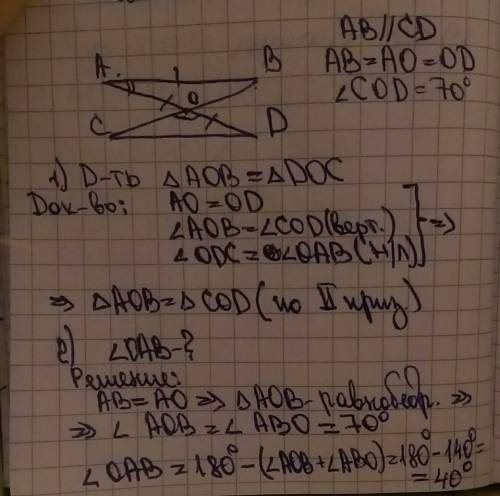 AB//CD
A. B
AB=AO=OD
O
∠COD=70°
C D
1) Д-ть △AOB=△DOC
Док-во: AO=OD
∠AOB=∠COD(верт.)
∠ODC=∠OAB(н/л) ⇒
⇒ △AOB=△COD(по II приз)
2) ∠OAB-?
Решение:
AB=AO ⇒ △AOB-равнобедр. ⇒
⇒ ∠AOB=∠ABO=70°
∠OAB=180°-(∠AOB+∠ABO)=180°-140°=
=40°